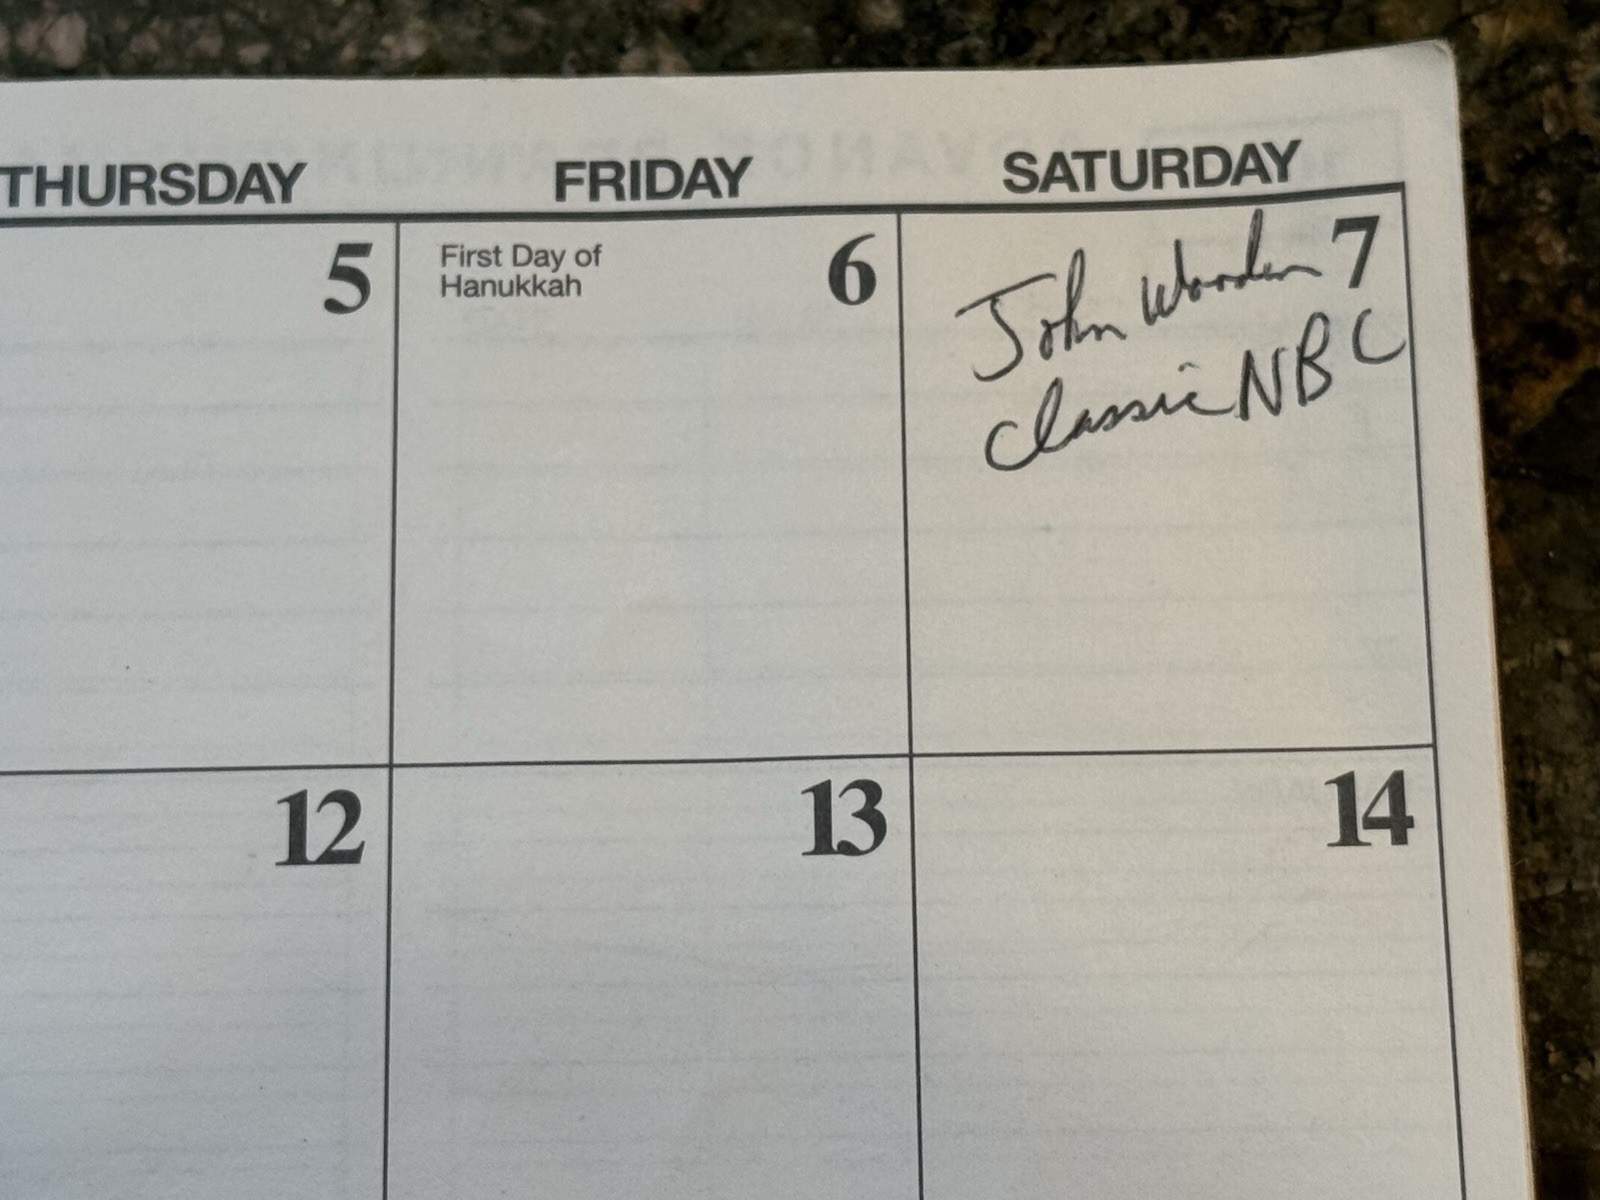 THURSDAY FRIDAY SATURDAY
5
First Day of
Hanukkah
6
John Wooden
Classic NBC
7
12 13 14